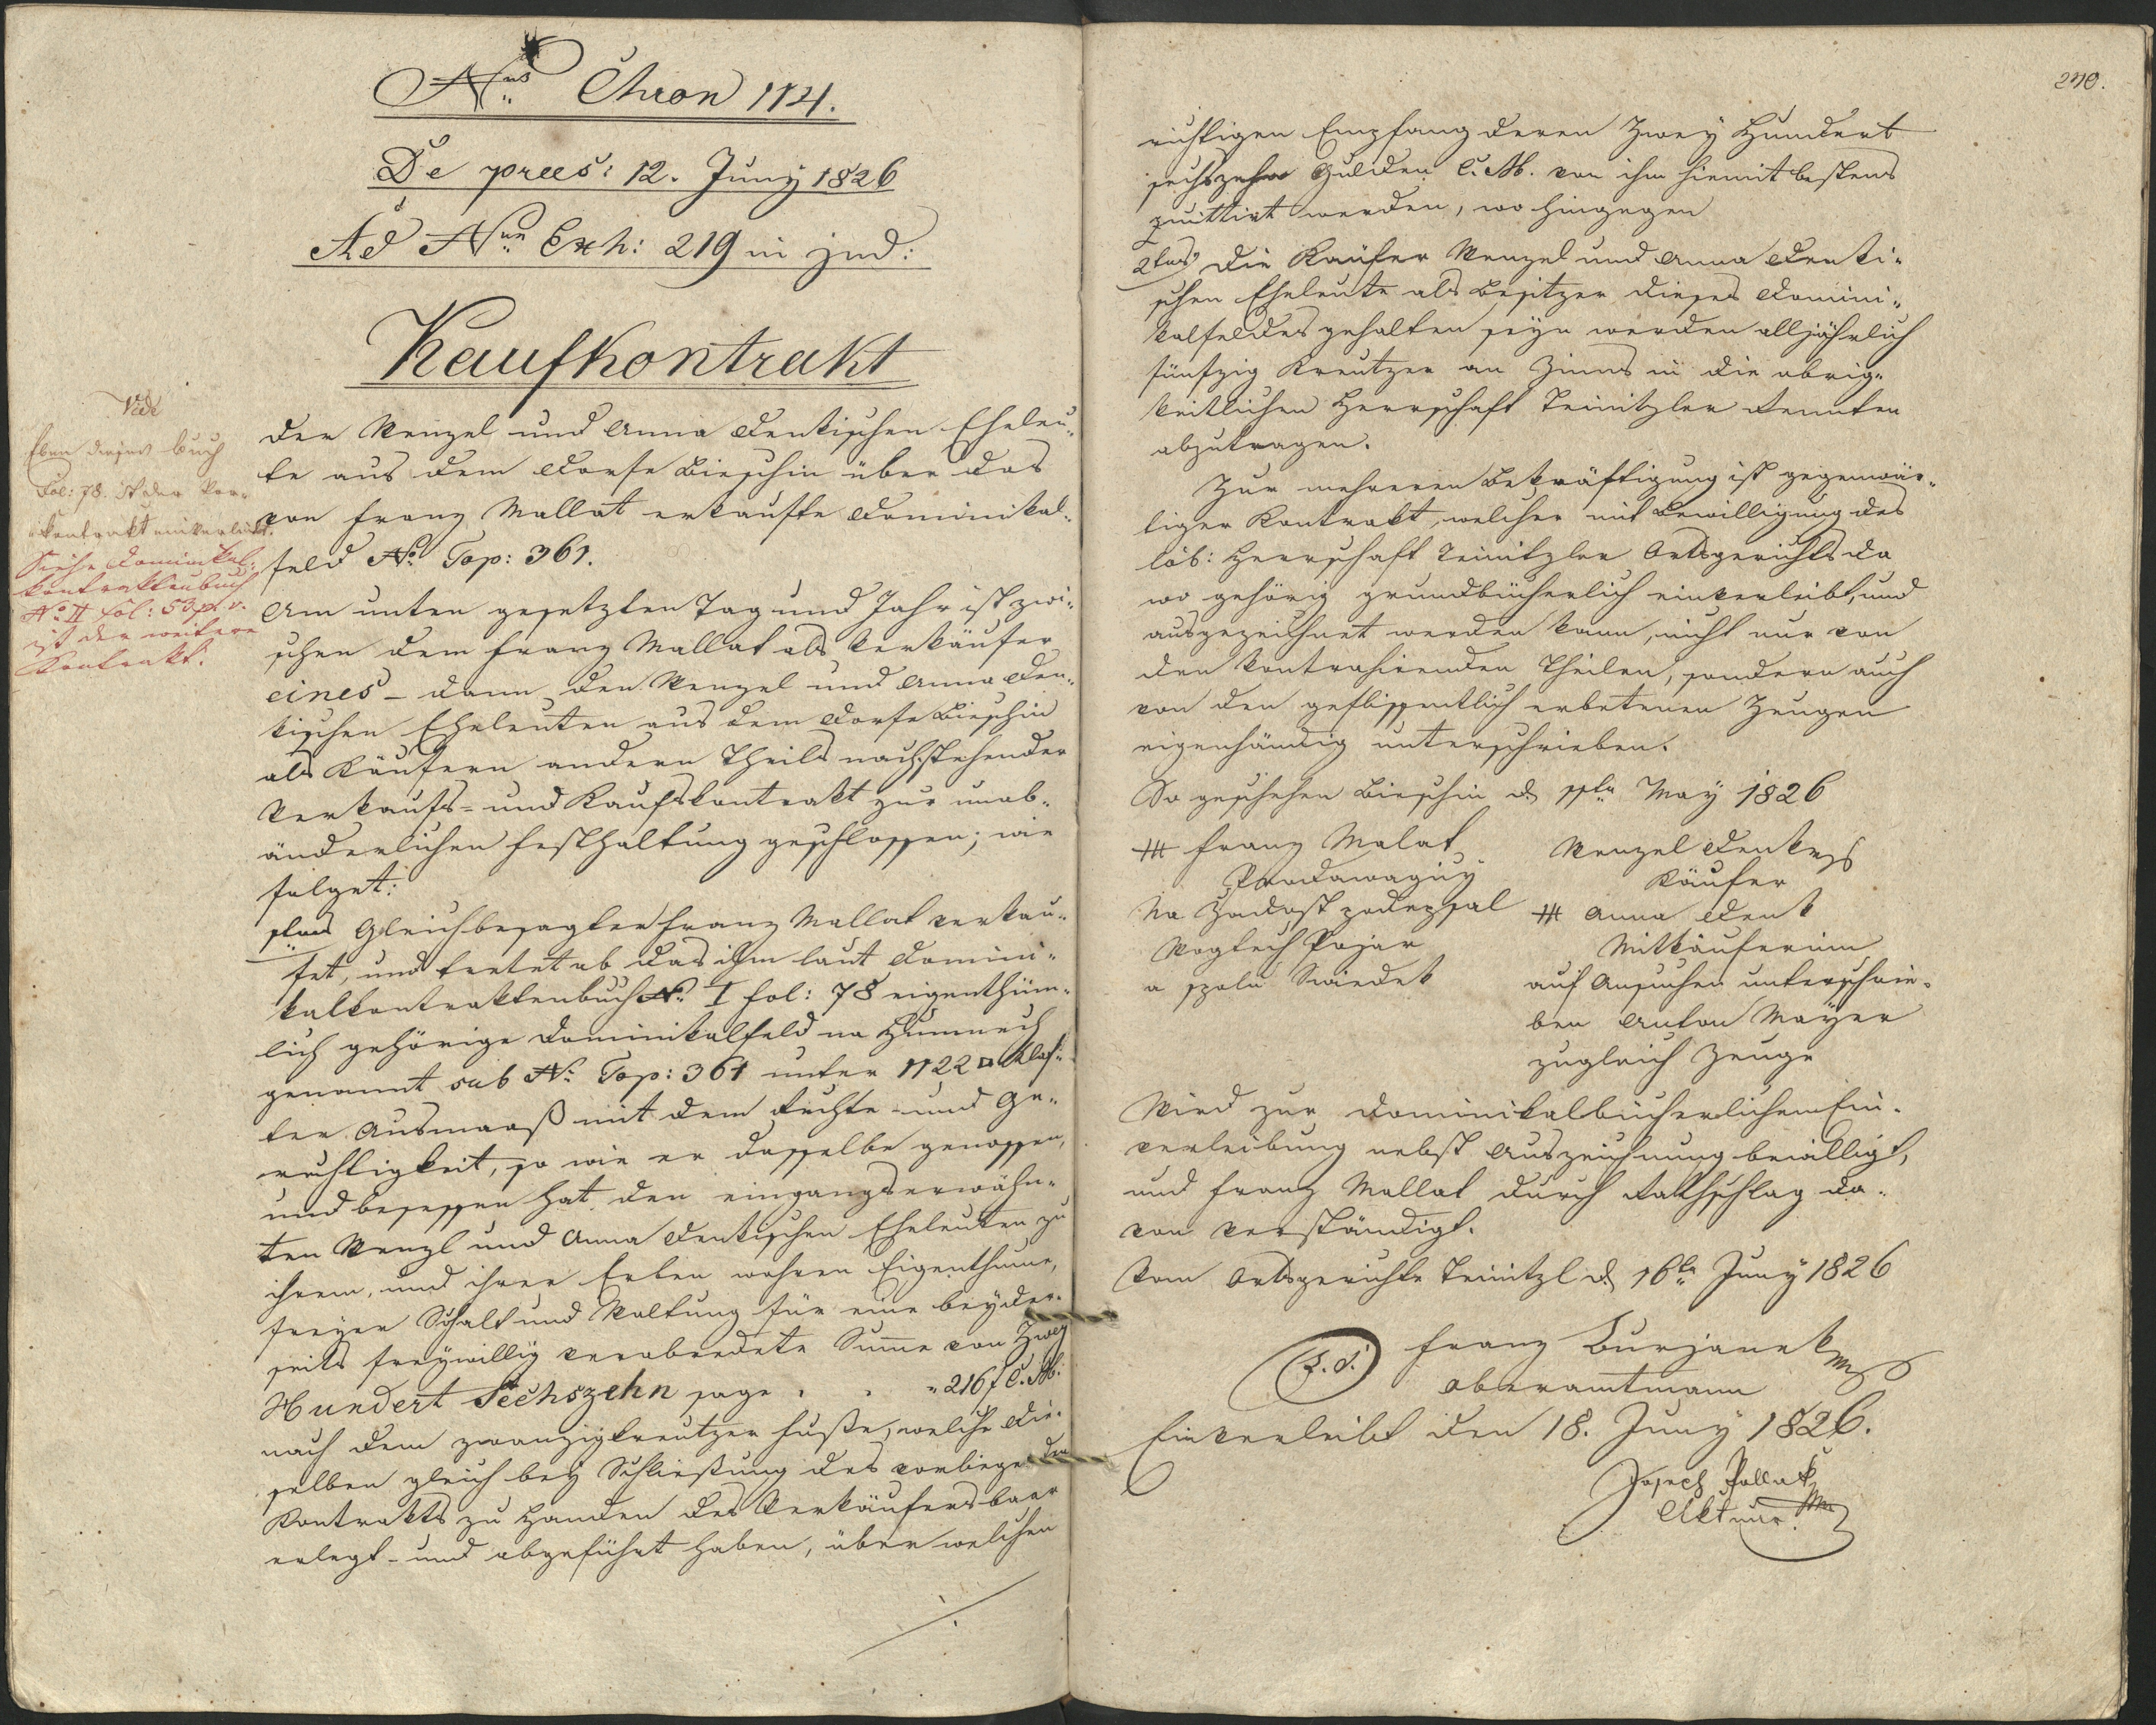 Nus Chron 1121.
De prees: 12. Juny 1826
Ad Num Exh: 219 in jud:
Kaufkontrakt
Vide
Eben dieses Buch
Fol: 78. ist der Vor-
kontrakt einverleibt.
Siehe Dominikal-
kontraktenbuch
No II fol: 53 p. v.
ist der weitere
Kontrakt.
Der Wenzel und Anna Denkischen Eheleu-
te aus dem Dorfe Bieschin über das
von Franz Mallat erkaufte Dominikal-
feld No Top: 361.
Am unten gesetzten Tag und Jahr ist zwi-
schen dem Franz Mallat als Verkäufer
eines – dann den Wenzel und Anna Den-
kischen Eheleuten aus dem Dorfe Bieschin
als Käufern andern Theils nachstehender
Verkaufs- und Kaufskontrakt zur unab-
änderlichen Festhaltung geschlossen; wie
folget:
1tens Gleichbesagter Franz Mallat verkau-
fet, und tretet ab das ihm laut Domini-
kalkontraktenbuch No I fol: 78 eigenthüm-
lich gehörige Dominikalfeld na
genannt sub No Top: 361 unter 1122 □ Klaf-
ter Ausmaaß mit dem Rechte- und Ge-
rechtigkeit, so wie er dasselbe genossen,
und besessen hat den eingangserwähn-
ten Wenzl und Anna Denkischen Eheleuten zu
ihrem, und ihrer Erben wahren Eigenthume,
freyer Schalt und Waltung für eine beyder-
seits freywillig verabredete Summe von Zwey
Hundert Sechszehn sage . . „216 f C. M.
nach dem zwanzigkreutzer Fuße, welche die-
selben gleich bey Schließung des vorliegenden
Kontrakts zu Handen des Verkäufers baar
erlegt- und abgeführt haben, über welchen
270.
richtigen Empfang deren Zwey Hundert
sechszehn Gulden C. M. von ihm hiemit bestens
quittirt werden, wo hingegen
2tens Die Käufer Wenzel und Anna Denki-
schen Eheleute als Besitzer dieses Domini-
kalfeldes gehalten seyn werden alljährlich
fünfzig Kreutzer an Zinns in die obrig-
keitlichen Herrschaft Teinitzler Renten
abzutragen.
Zur mehreren Bekräftigung ist gegenwär-
tiger Kontrakt, welcher mit Bewilligung des
löb: Herrschaft Teinitzler Ortsgerichts da
wo gehörig grundbücherlich einverleibt, und
ausgezeichnet werden kann, nicht nur von
den kontrahirenden Theilen, sondern auch
von den geflissentlich erbetenen Zeugen
eigenhändig unterschrieben.
So geschehen Bieschin d 1ten May 1826
+++ Franz Malat
Prodawaguy
Na Zadost podepsal
Wogtech Pojar
a spolu Swiedek
Wenzel Denk
Käufer
+++ Anna Denk
Mitkäuferinn
auf Ansuchen unterschrie-
ben Anton Mayer
zugleich Zeuge
Wird zur dominikalbücherlichen Ein-
verleibung nebst Auszeichnung bewilligt,
und Franz Mallat durch Rathschlag da-
von verständigt.
Vom Ortsgerichte Teinitzl d 16ten Juny 1826
(L. S.) Franz Burjanek
Oberamtmann
Einverleibt den 18. Juny 1826.
Joseph Pollak
Aktuar.